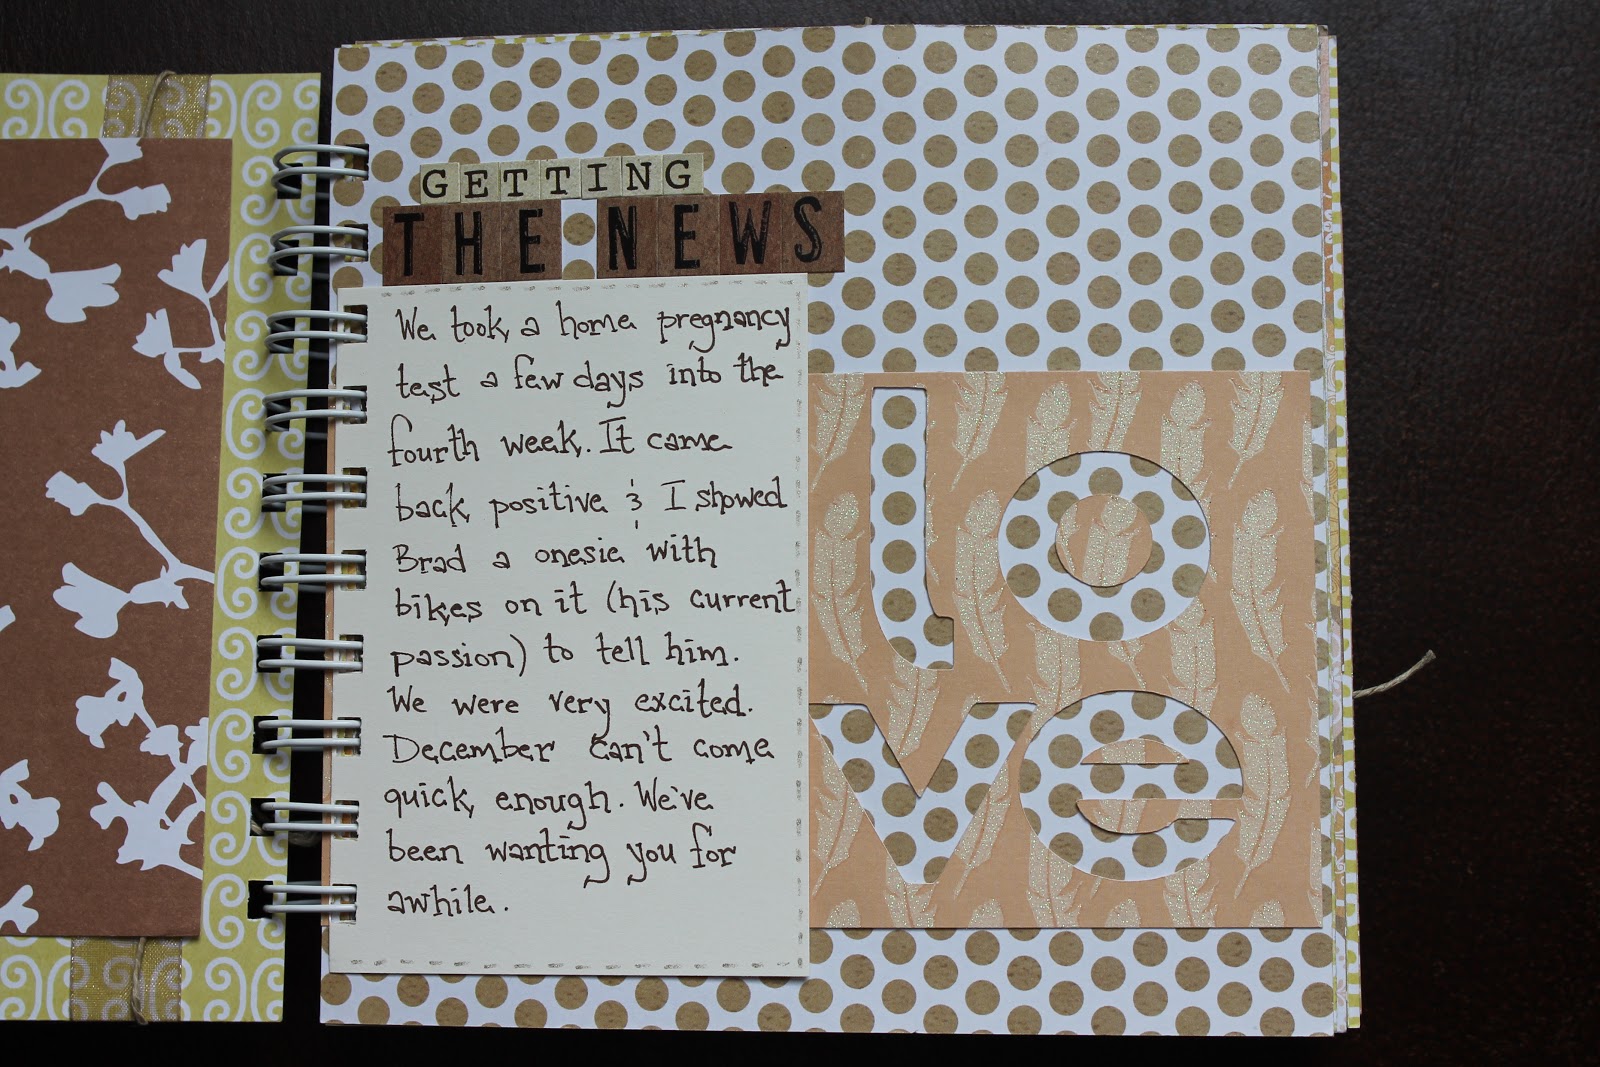 GETTING
THE NEWS
We took a home pregnancy
test a few days into the
fourth week. It came
back positive & I showed
Brad a onesie with
bikes on it (his current
passion) to tell him.
We were very excited.
December can't come
quick enough. We've
been wanting you for
awhile.
lo
ve